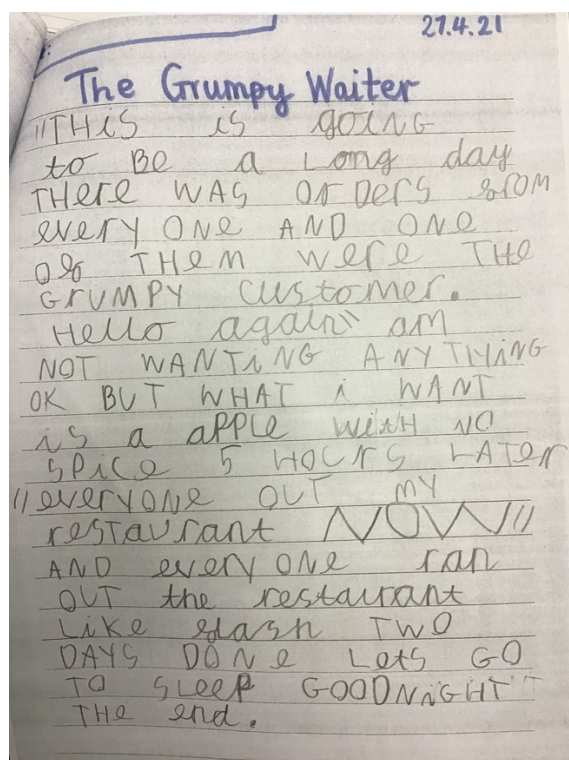 27.4.21
The Grumpy Waiter
"THis is goiNG
to Be a Long day
THere WAS OrDerS from
every ONe AND ONe
of THem were THe
GrUMPY Customer.
Hello again" am
NOT WANTiNG ANYTHiNG
OK BUT WHAT i WANT
is a aPPLe WitH NO
SPiCe 5 HOUrS LATer
"everyoNe OUT MY
reSTaUrant NOW"
AND every ONe ran
OUT the restaurant
Like flash TWO
DAYS DONe Lets GO
TO SLeeP GOODNiGHT"
THe end.